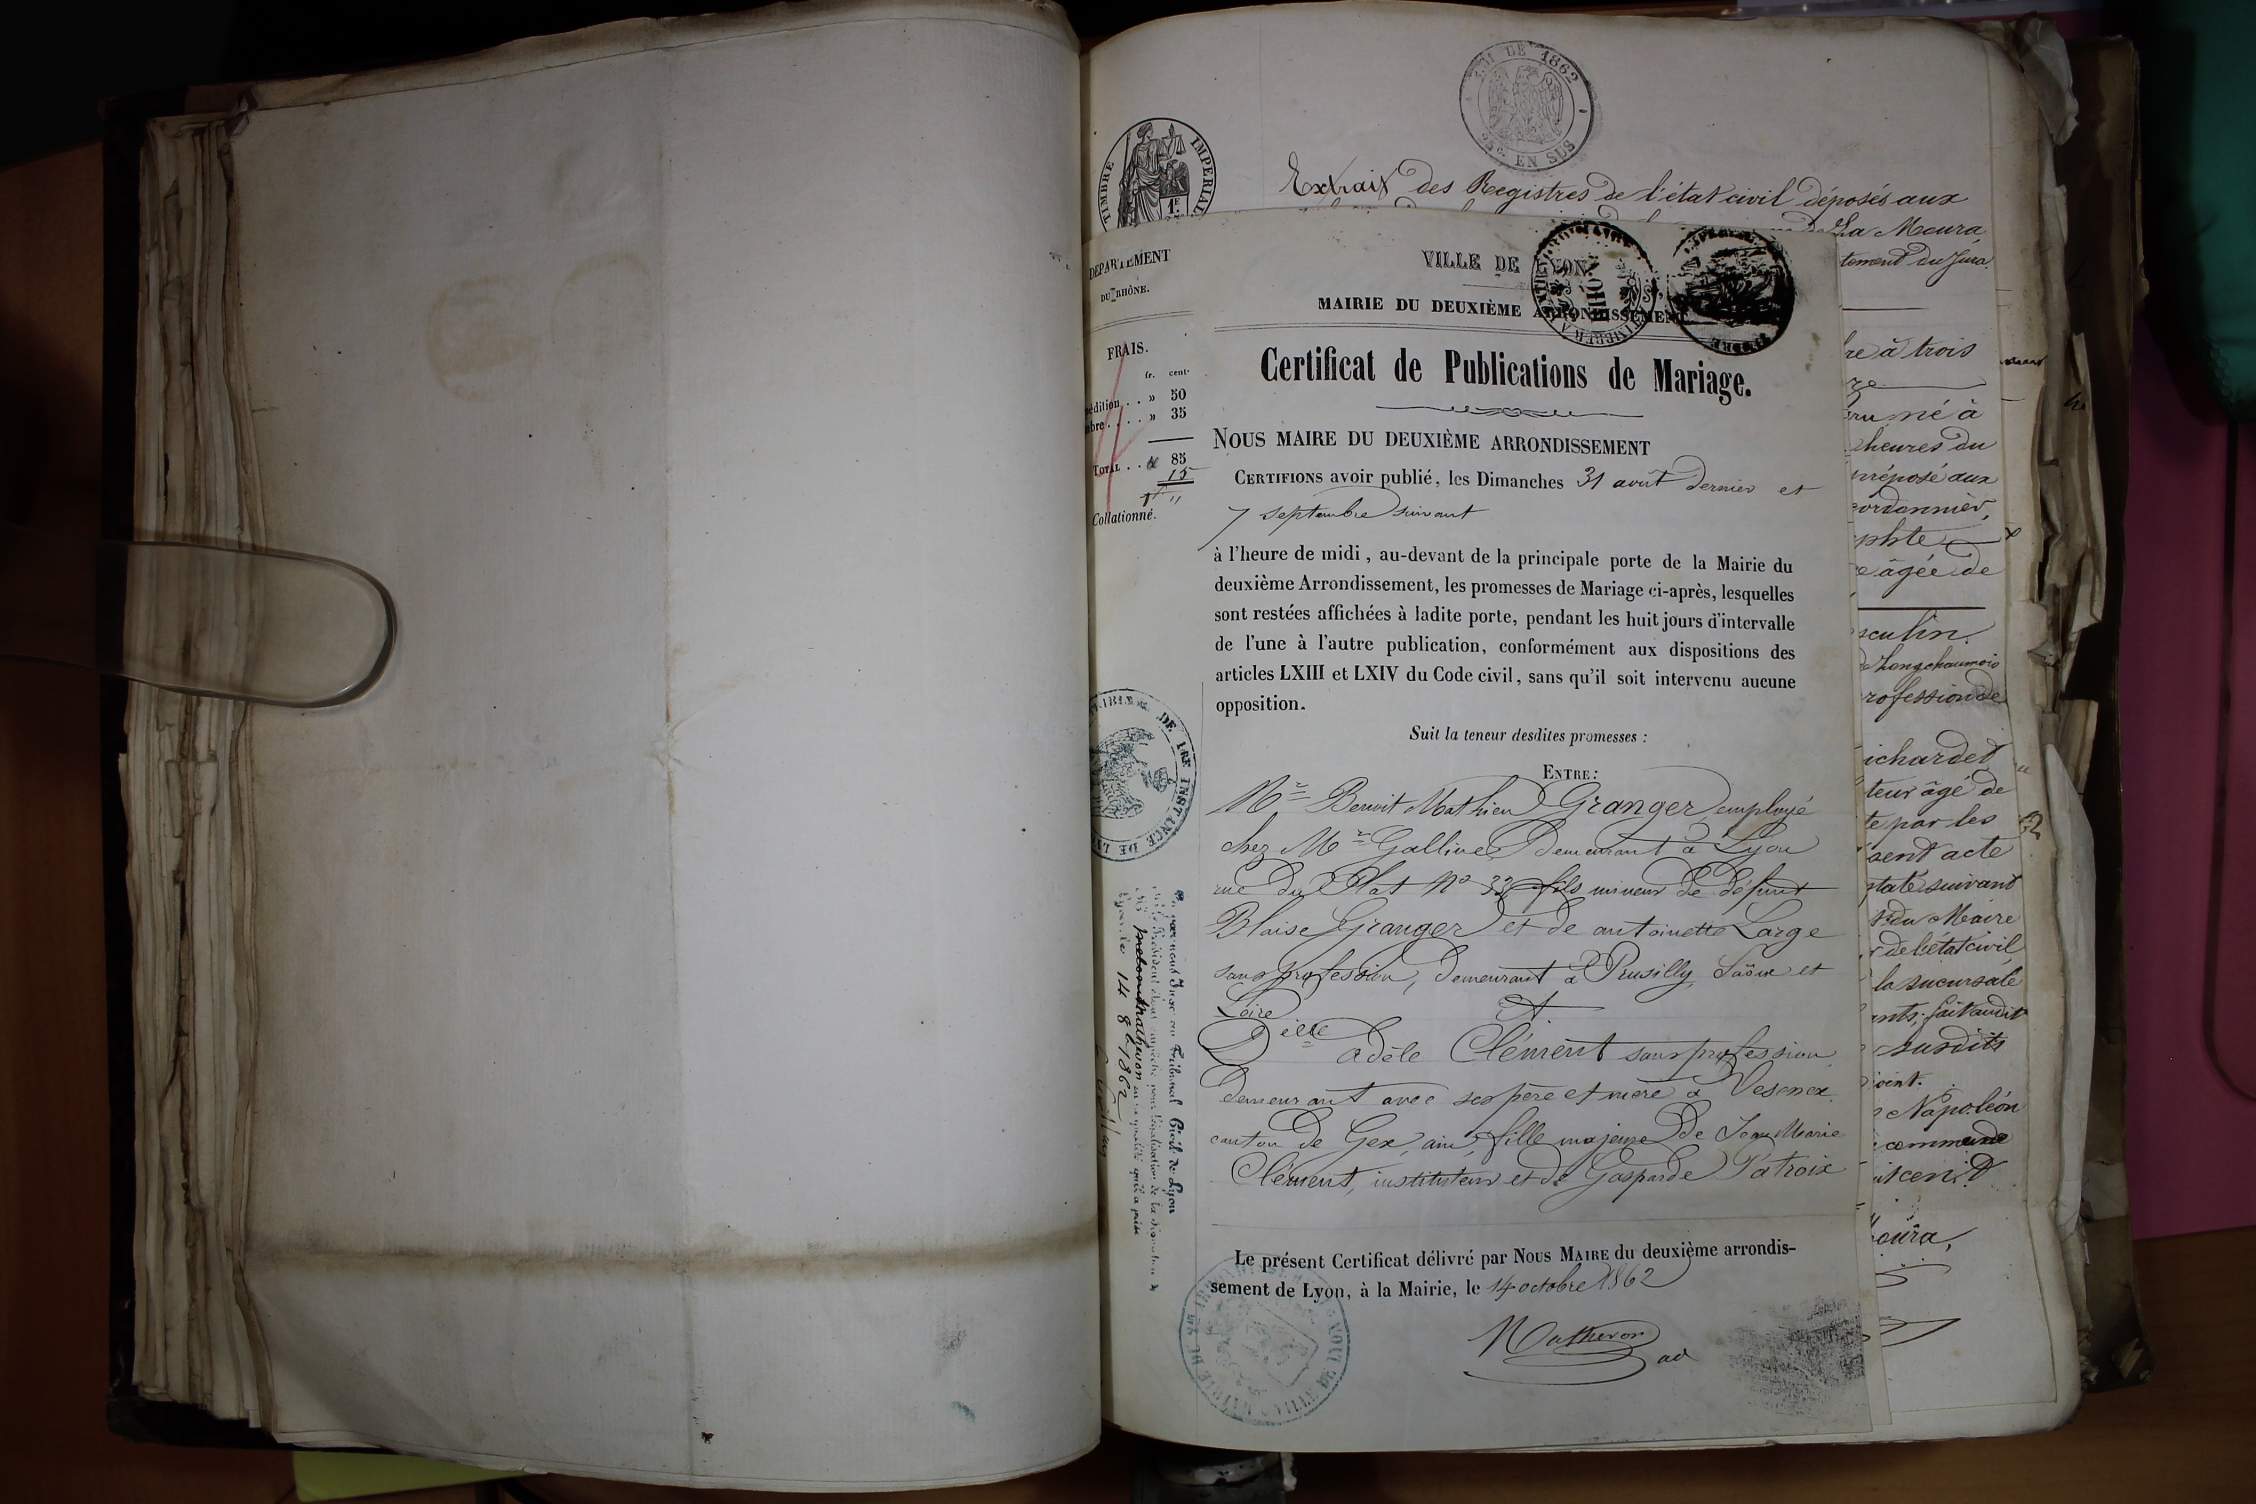 LOI DE 1862
25c. EN SUS
TIMBRE IMPERIAL
1F
Extrait des Registres de l'état civil déposés aux
La Moura
tement du Jura.
DEPARTEMENT
DU RHÔNE.
VILLE DE LYON.
MAIRIE DU DEUXIÈME ARRONDISSEMENT
FRAIS.
fr. cent.
édition . . » 50
mbre . . . . » 35
TOTAL . . 85
15
1 "
Collationné.
Certificat de Publications de Mariage.
NOUS MAIRE DU DEUXIÈME ARRONDISSEMENT
CERTIFIONS avoir publié, les Dimanches 31 août dernier et
7 septembre suivant
à l'heure de midi, au-devant de la principale porte de la Mairie du
deuxième Arrondissement, les promesses de Mariage ci-après, lesquelles
sont restées affichées à ladite porte, pendant les huit jours d'intervalle
de l'une à l'autre publication, conformément aux dispositions des
articles LXIII et LXIV du Code civil, sans qu'il soit intervenu aucune
opposition.
Suit la teneur desdites promesses :
ENTRE :
Mr Benoit Mathieu Granger, employé
chez Mr Galline, demeurant à Lyon
rue du Plat No 33, fils mineur de défunt
Blaise Granger et de antoinette Large
sans profession, demeurant à Pruzilly, Saône et
Loire
Et
Delle adèle Clément sans profession,
demeurant avec ses père et mère à Vesenex
canton de Gex, ain, fille majeure de Jean Marie
Clément, instituteur et de Gasparde Patroix
Le présent Certificat délivré par NOUS MAIRE du deuxième arrondis-
sement de Lyon, à la Mairie, le 14 octobre 1862
Matheron
ad
DE 1RE INSTANCE DE
par nous Juge au Tribunal Civil de Lyon
pour légalisation de la signature de
Mr Matheron en sa qualité qu'il a prise
Lyon, le 14 8bre 1862
re à trois
né à
heures du
préposé aux
cordonnier,
phte
e âgée de
sculin.
de Longchaumois
rofession de
ichardet
teur âgé de
te par les
sent acte
staté suivant
du Maire
r de l'état civil
la sucursale
ants; fait audit
susdits
oint.
Napoléon
commune
oura,